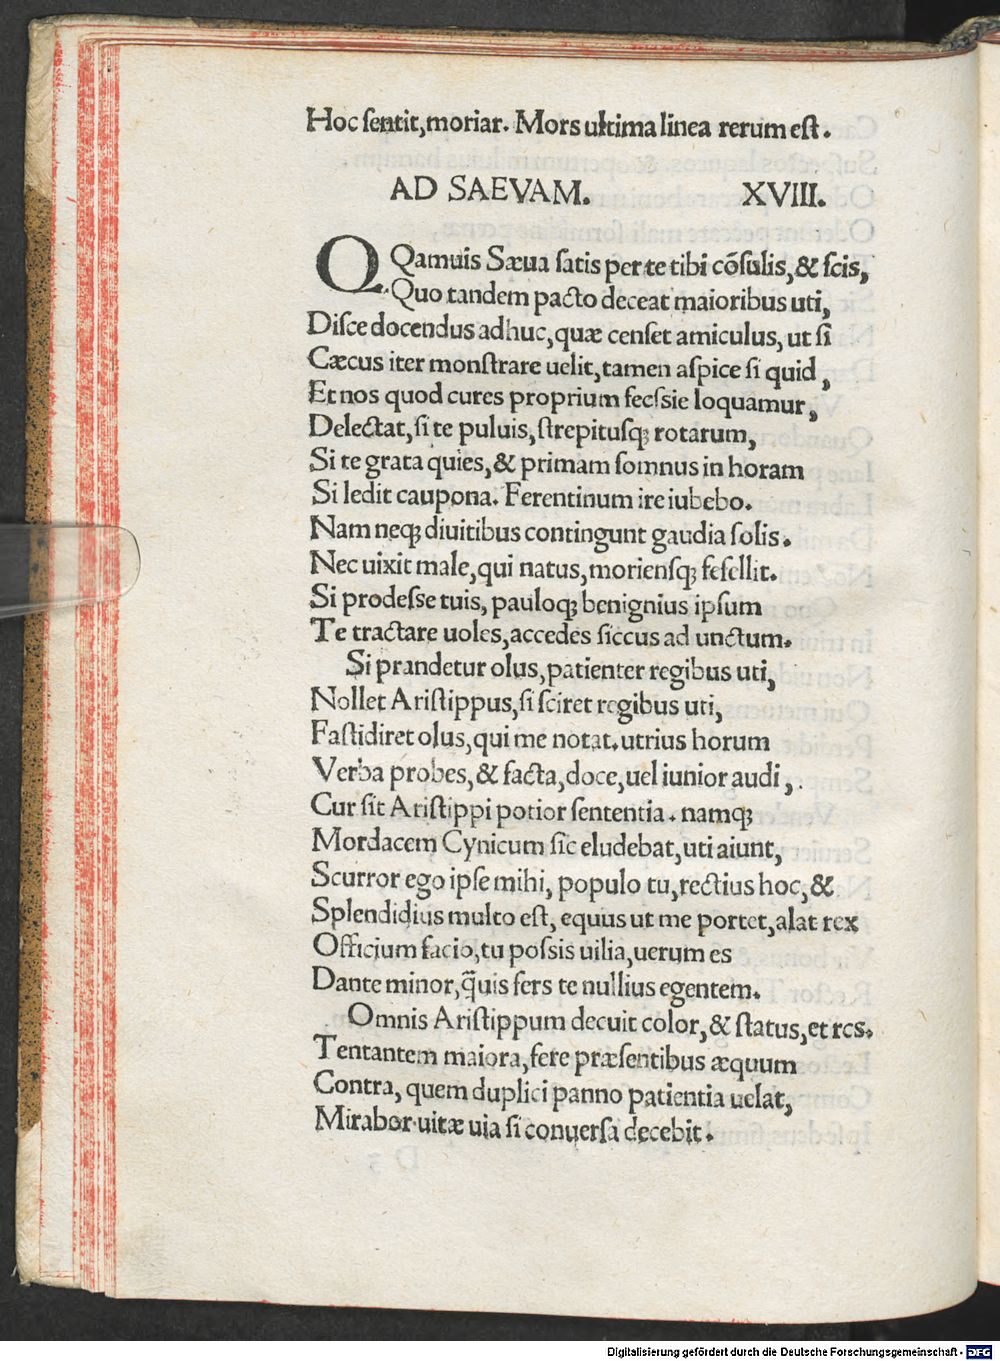 Hoc ſentit,moriar. Mors ultima linea rerum eſt.
AD SAEVAM. XVIII.
QQamuis Sæua ſatis per te tibi cõſulis,& ſcis,
Quo tandem pacto deceat maioribus uti,
Diſce docendus adhuc,quæ cenſet amiculus, ut ſi
Cæcus iter monſtrare uelit,tamen aſpice ſi quid,
Et nos quod cures proprium feeſsie loquamur,
Delectat,ſi te puluis,ſtrepituſqꝫ rotarum,
Si te grata quies,& primam ſomnus in horam
Si ledit caupona. Ferentinum ire iubebo.
Nam neqꝫ diuitibus contingunt gaudia ſolis.
Nec uixit male,qui natus,morienſqꝫ fefellit.
Si prodeſse tuis, pauloqꝫ benignius ipſum
Te tractare uoles,accedes ſiccus ad unctum.
Si pranderet olus,patienter regibus uti,
Nollet Ariſtippus,ſi ſciret regibus uti,
Faſtidiret olus,qui me notat.utrius horum
Verba probes,& facta,doce,uel iunior audi,.
Cur ſit Ariſtippi potior ſententia. namqꝫ
Mordacem Cynicum ſic eludebat,uti aiunt,
Scurror ego ipſe mihi, populo tu,rectius hoc,&
Splendidius multo eſt, equus ut me portet,alat rex
Officium facio,tu poſsis uilia,uerum es
Dante minor,q̃uis fers te nullius egentem.
Omnis Ariſtippum decuit color,& ſtatus,et res.
Tentantem maiora,fere præſentibus æquum
Contra, quem duplici panno patientia uelat,
Mirabor uitæ uia ſi conuerſa decebit.
Digitalisierung gefördert durch die Deutsche Forschungsgemeinschaft - DFG